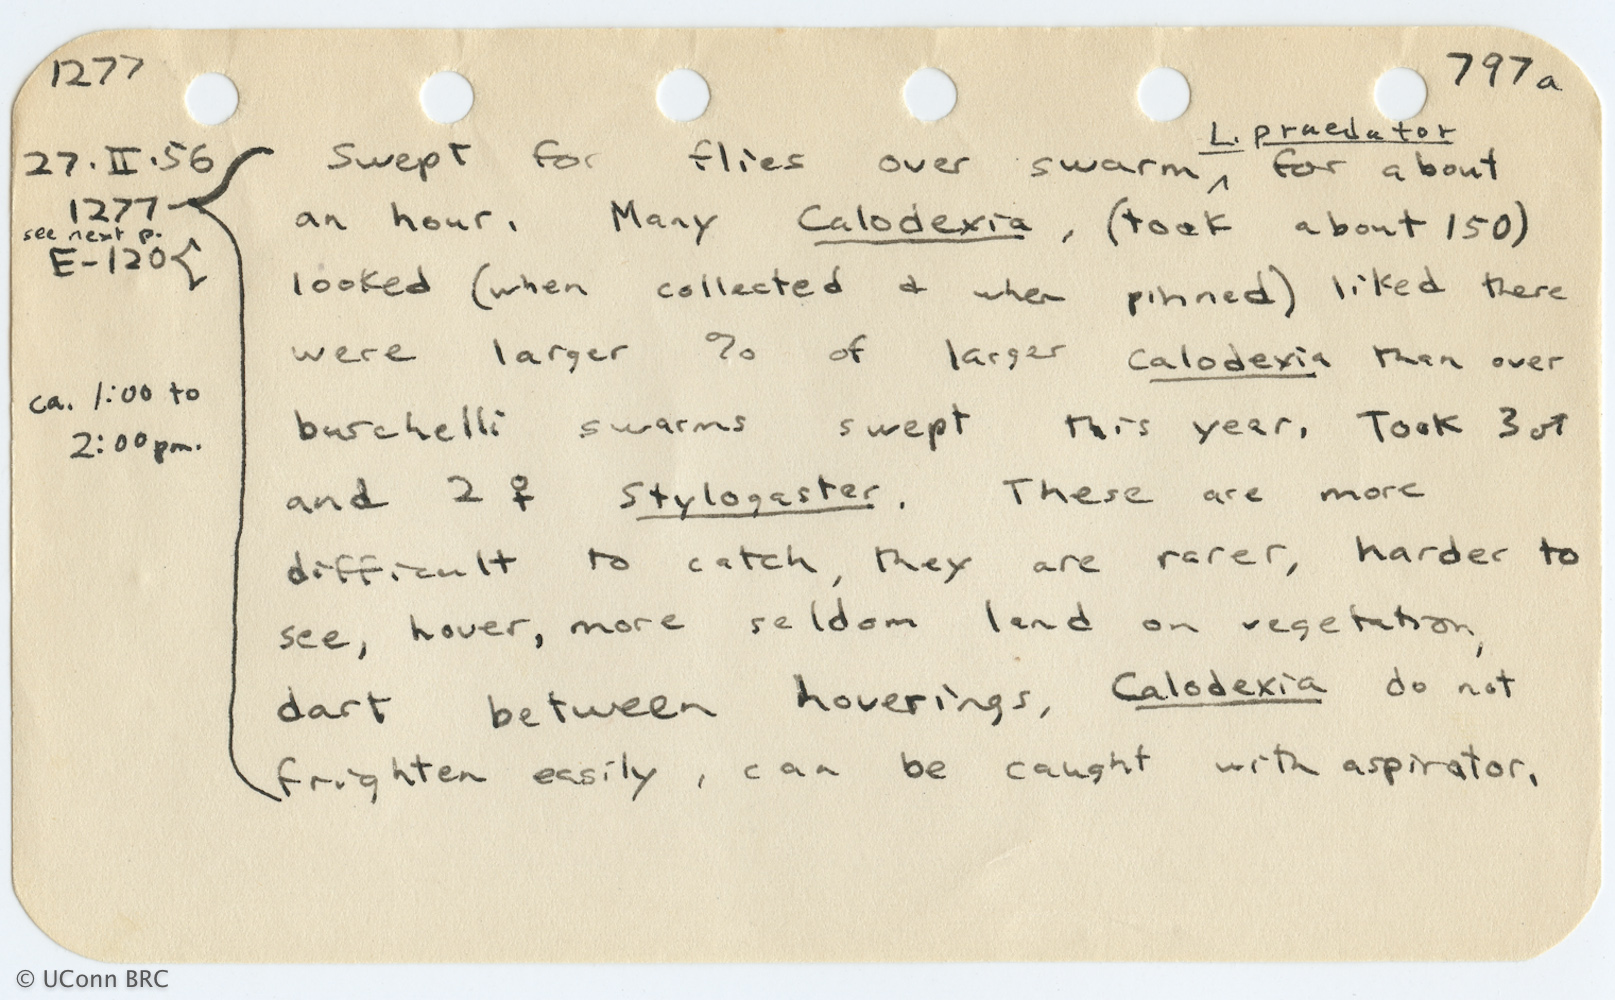 1277
797a
27·II·56
1277
see next p.
E-120
ca. 1:00 to
2:00pm.
Swept for flies over swarm ^ L. praedator for about
an hour. Many Calodexia, (took about 150)
looked (when collected & when pinned) liked there
were larger % of larger Calodexia than over
burchelli swarms swept this year. Took 3♂
and 2♀ Stylogaster. These are more
difficult to catch, they are rarer, harder to
see, hover, more seldom land on vegetation,
dart between hoverings, Calodexia do not
frighten easily, can be caught with aspirator.
© UConn BRC